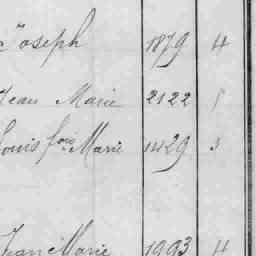 Joseph 1879 4
Jean Marie 2122 1
Louis fois Marie 1429 3
Jean Marie 1993 4